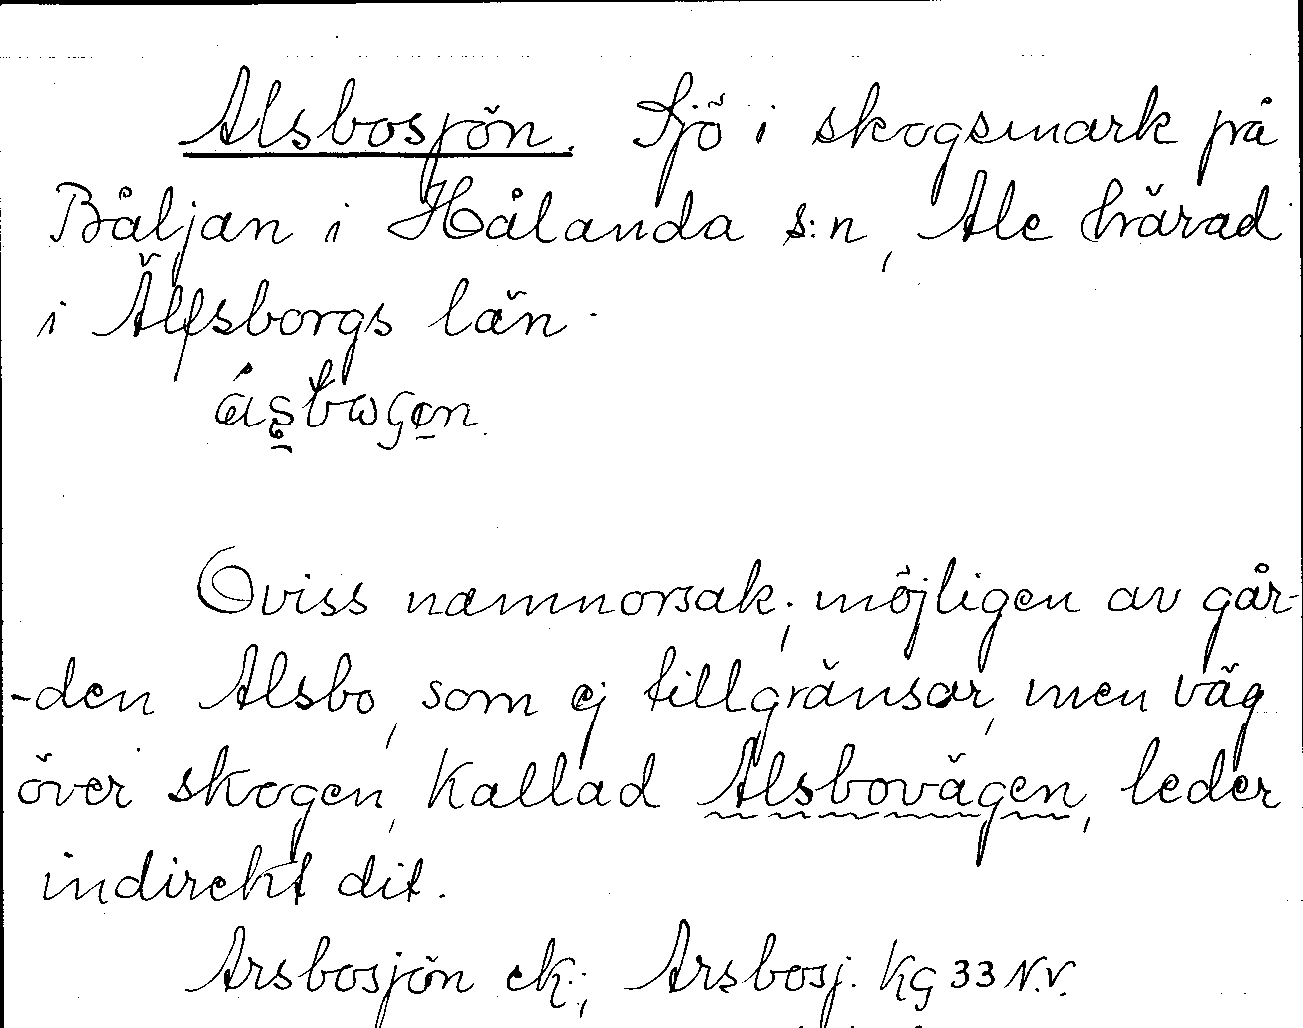 Alsbosjön. Sjö i skogsmark på
Båljan i Hålanda s:n, Ale härad
i Älfsborgs län.
Oviss namnorsak; möjligen av går-
-den Alsbo, som ej tillgränsar, men väg
över skogen, kallad Alsbovägen, leder
indirekt dit.
Arsbosjön ek.; Arsbosj. Kg 33 N.V.